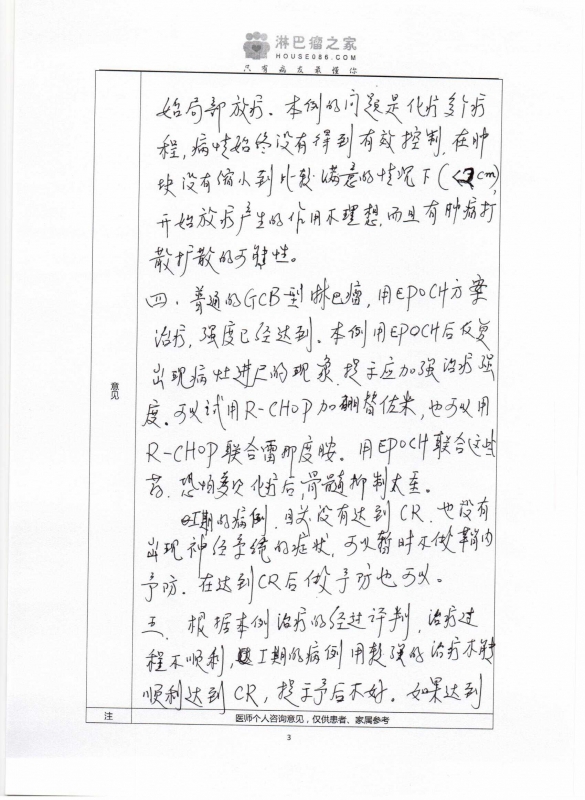 淋巴瘤之家
HOUSE086.COM
只有病友最懂你
始局部放疗。本例的问题是化疗多个疗
程，病情始终没有得到有效控制，在肿
块没有缩小到比较满意的情况下（<2cm），
开始放疗产生的作用不理想，而且有肿瘤打
散扩散的可能性。
四、普通的GCB型淋巴瘤，用EPOCH方案
治疗，强度已经达到。本例用EPOCH后反复
出现病灶进展的现象，提示应加强治疗强
度。可以试用R-CHOP加硼替佐米，也可以用
R-CHOP联合雷那度胺。用EPOCH联合这些
药，恐怕多次化疗后，骨髓抑制太重。
I期的病例，目前没有达到CR，也没有
出现神经系统的症状，可以暂时不做鞘内
予防。在达到CR后做予防也可以。
三、根据本例治疗的经过评判，治疗过
程不顺利，I期的病例用较强的治疗未能
顺利达到CR，提示予后不好。如果达到
意见
注
医师个人咨询意见，仅供患者、家属参考
3